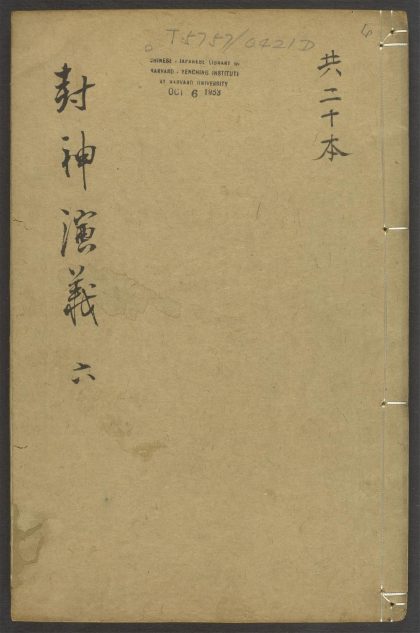 T5757/0421D
CHINESE - JAPANESE LIBRARY OF
HARVARD - YENCHING INSTITUTE
AT HARVARD UNIVERSITY
OCT 6 1953
共二十本
封神演義 六